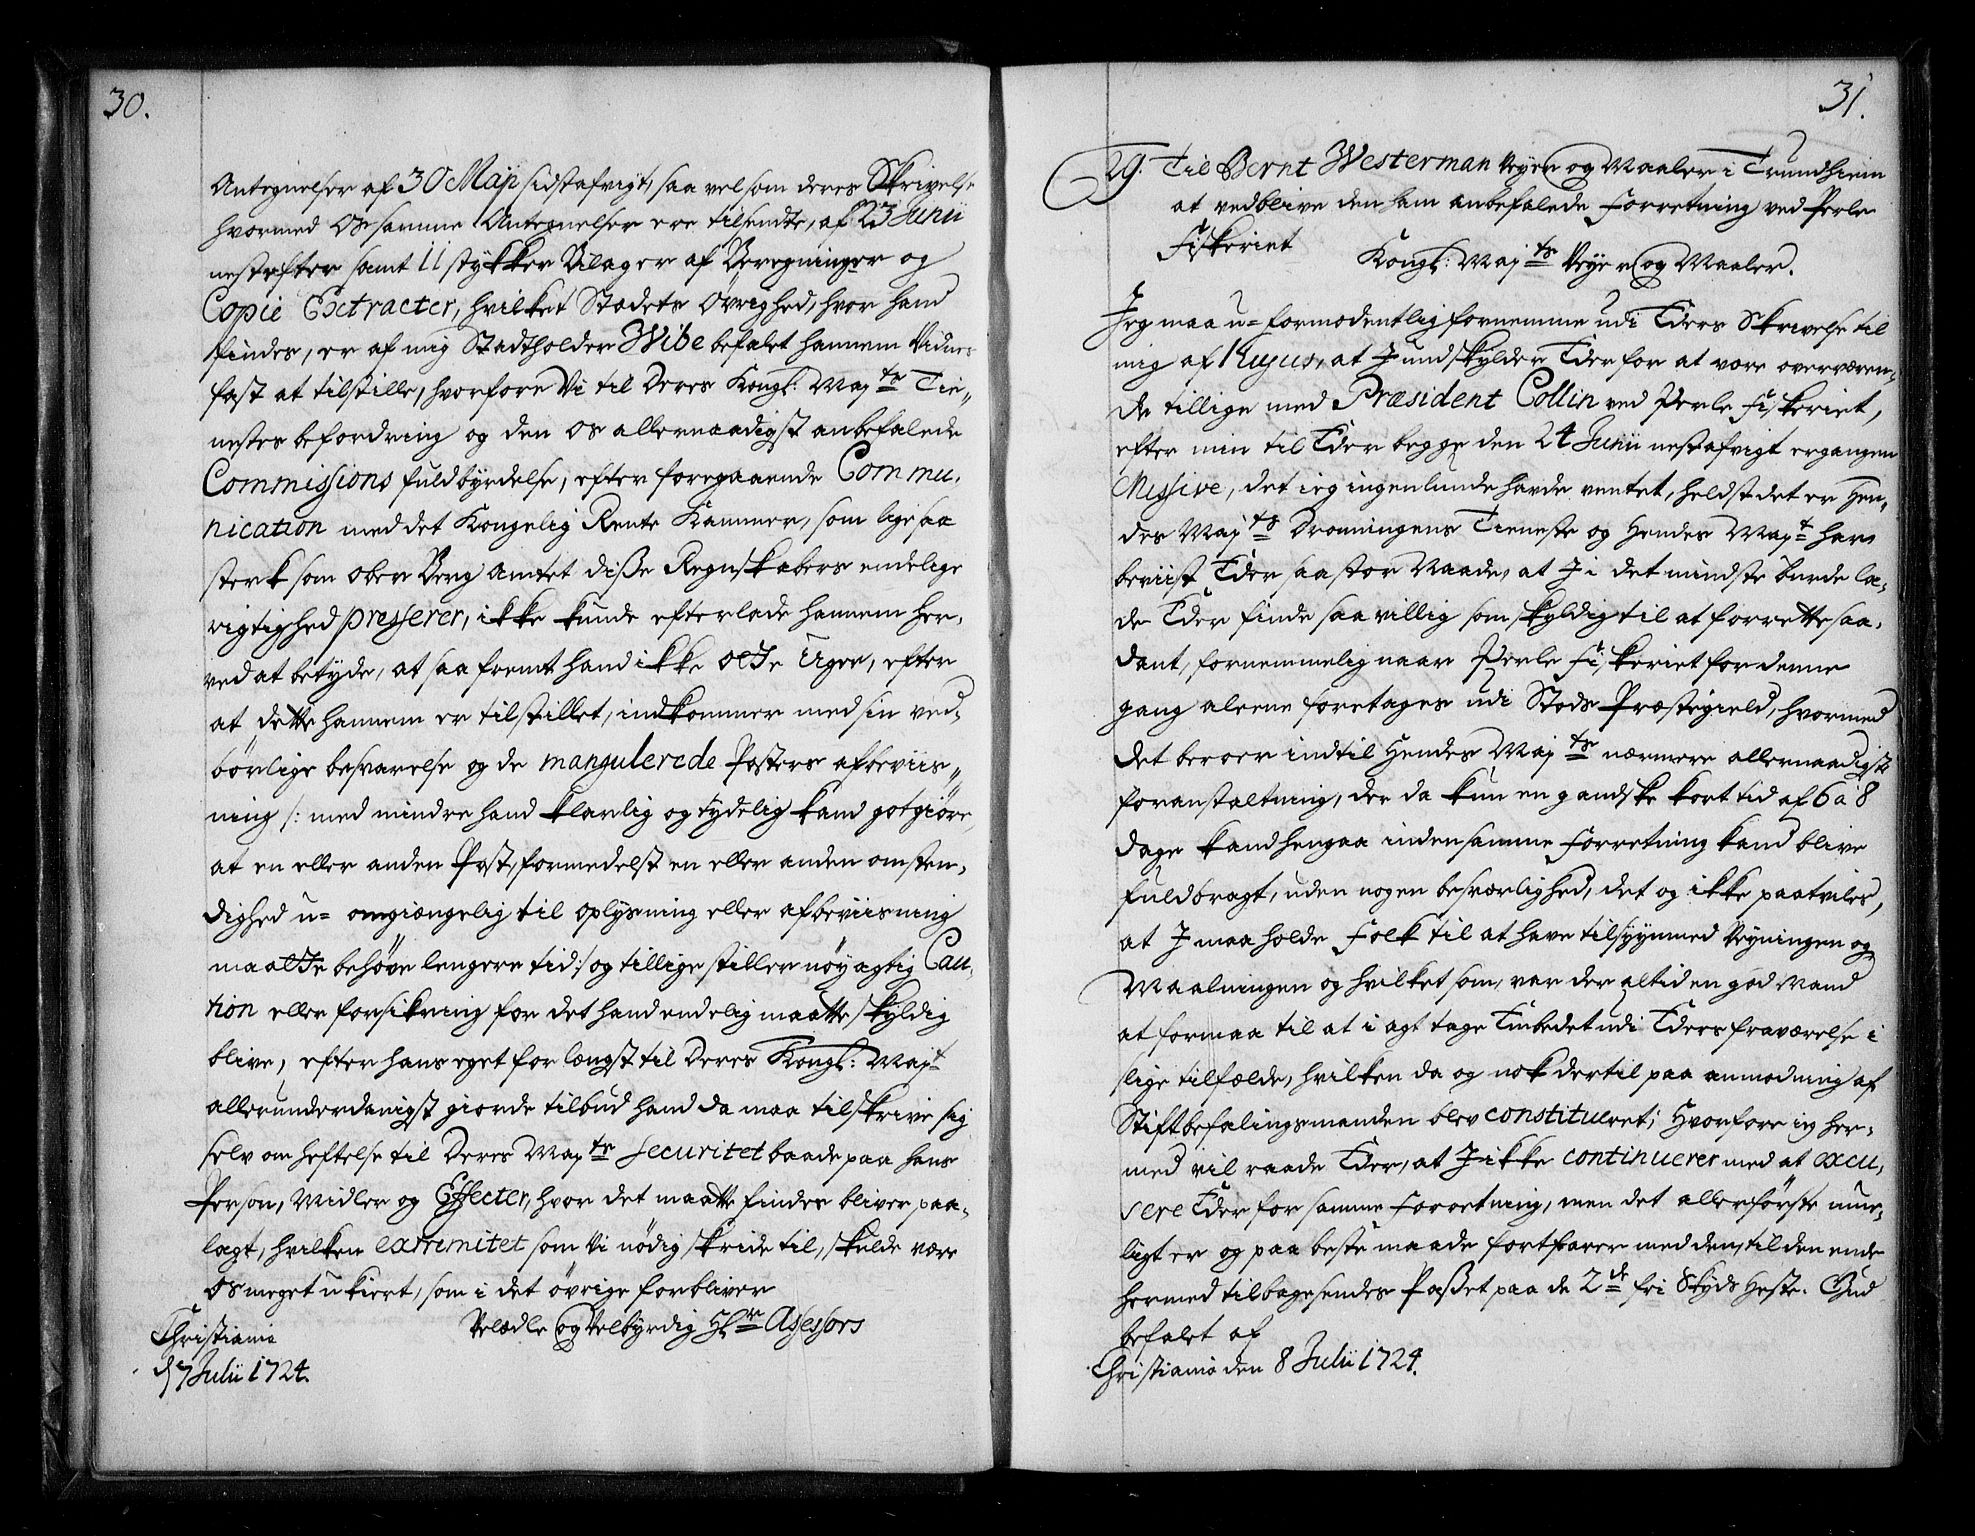 30.
Antegnelser af 30 Maji sidstafvigt, saa vel som deres Skrivelse
hvormed Os samme Antegnelser ere tilsendte, af 23 Junii
nestefter samt 11 stykker Bilager af Beregninger og
Copie Extracter, hvilket Stædets Øvrighed, hvor hand
findes, er af mig Stadtholder Wibe befalet hannem Vidnes
fast at tilstille, hvorfore Vi til Deres Kongl: Majts Tie„
nestes befordring og den os allernaadigst anbefalede
Commissions fuldbyrdelse, efter foregaaende Commu,
nication med det Kongelig Rente Kammer, som lige saa
sterk som Ober Berg Amtet disse Regnskabers endelige
rigtighed presserer, ikke kunde efterlade hannem her,
ved at betyde, at saa fremt hand ikke otte Uger, efter
at dette hannem er tilstillet, indkommer med sin ved,
børlige besvarelse og de mangulerede Posters afbeviis„
ning /: med mindre hand klarlig og tydelig kand gotgiøre,
at en eller anden Post, formedelst en eller anden omsten,
dighed u= omgiengelig til oplysning eller afbeviisning
maatte behøve lengere tid :/ og tillige stiller nøyagtig Cau,
tion eller forsikring for det hand endelig maatte skyldig
blive, efter hans eget for længst til Deres Kongl: Majt
allerunderdanigst giorde tilbud hand da maa tilskrive sig
selv om heftelse til Deres Majts securitet baade paa hans
Person, Midler og Effecter, hvor det maatte findes bliver paa,
lagt, hvilken extremitet som Vi nødig skride til, skulde være
os meget ukiert, som i det øvrige forbliver
Velædle og Velbyrdig Hr Assessors
Christiania
d 7 Julii 1724.
31.
29. Til Bernt Westerman Veyer og Maaler i Trundhiem
at vedblive den ham anbefalede Forretning ved Perle
Fiskeriet
Kongl: Majts Veyer og Maaler.
Jeg maa u= formodentlig fornemme udi Eders Skrivelse til
mig af Hujus, at I undskylder Eder for at være overværen„
de tillige med Præsident Collin ved Perle Fiskeriet,
efter min til Eder begge den 24 Junii nestafvigt ergangen
Missive, det ieg ingenlunde havde ventet, heldst det er Hen„
des Majts Dronningens Tieneste og Hendes Majt har
beviist Eder saa stor Naade, at I i det mindste burde la„
de Eder finde saa villig som skyldig til at forrette saa,
dant, fornemmelig naar Perle Fiskeriet for denne
gang aleene foretages udi Stods Præstegield, hvormed
det beroer indtil Hendes Majts nærmere allernaadigste
foranstaltning, der da kun en gandske kort tid af 6 a 8
dage kand hengaa inden samme Forretning kand blive
fuldbragt, uden nogen besværlighed, det og ikke paatviles,
at I maa holde Folk til at have tilsyynmed Veyningen og
Maalningen og hvilket som, var der altid en god Mand
at formaa til at i agt tage Embedet udi Eders fraværelse i
slige tilfælde, hvilken da og nok dertil paa anmodning af
Stiftbefalingsmanden blev constitueret; Hvorfore ieg her,
med vil raade Eder, at I ikke continuerer med at excu,
sere Eder for samme Forretning, men det allerførste mue,
ligt er og paa beste maade fortfarer med den, til den ende
hermed tilbagesendes Passet paa de 2de fri Skyds Heste. Gud
befalet af
Christiania den 8 Julii 1724.